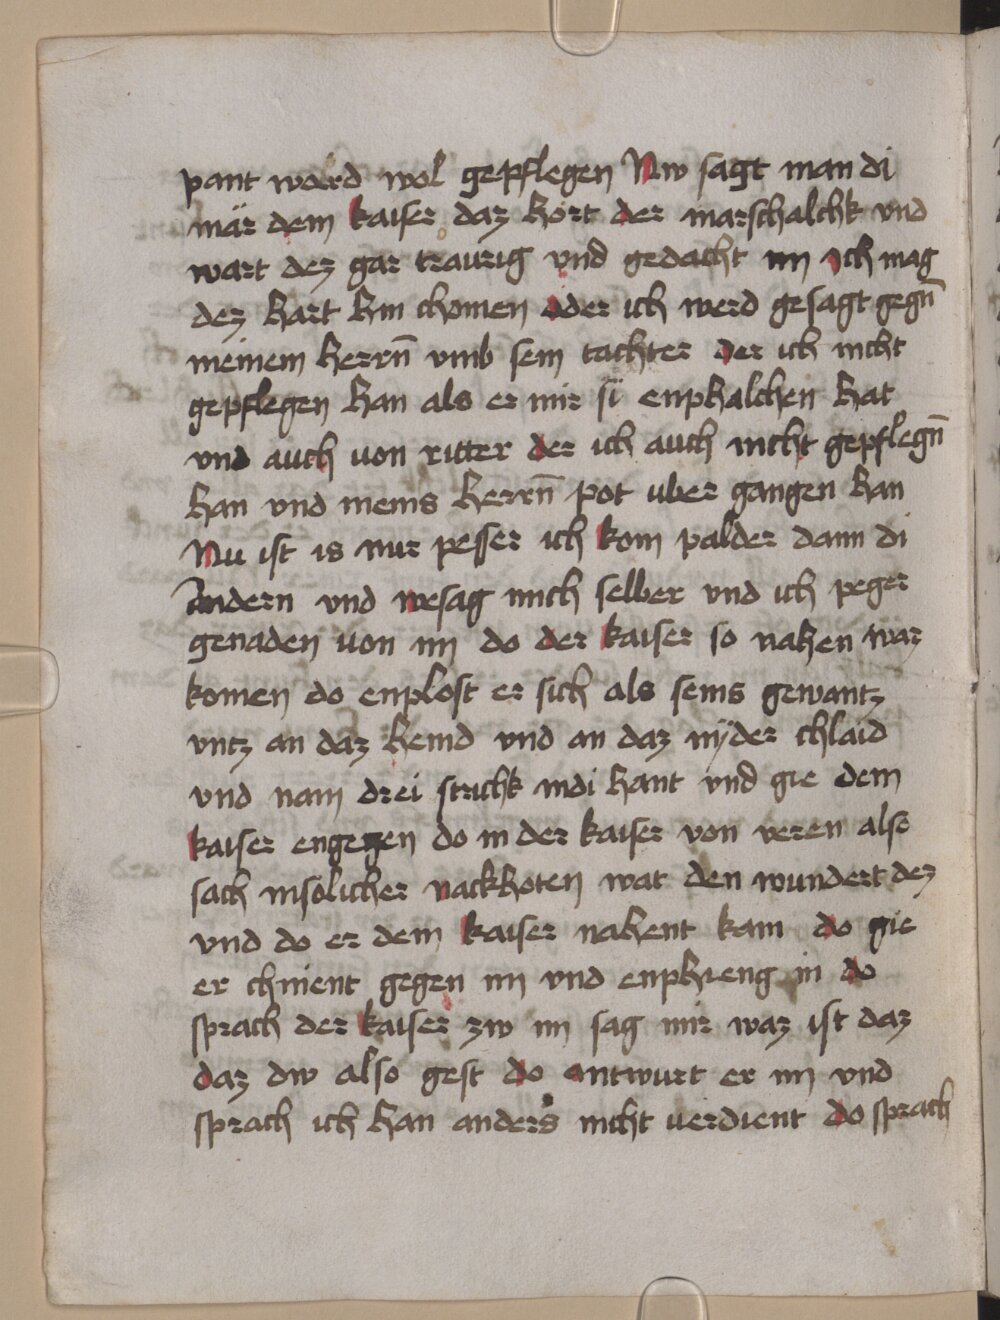 pant ward wol gepflegen Nw sagt man di
mär dem kaiser daz hört der marschalchk vnd
wart dez gar traurig vnd gedacht im Ich mag
dez hart hin chomen oder ich werd gesagt gegn̄
meinem herrn̄ vmb sein tachter der ich nicht
gepflegen han als er mir si enphalchen hat
vnd auch von ritter der ich auch nicht gepflegn̄
han vnd meins herrn̄ pot uber gangen han
Nu ist is mir pesser ich kom palder dann di
Andern vnd wesag mich selber vnd ich peger
genaden von im do der kaiser so nahen waz
komen do enplost er sich als seins gewantz
vntz an daz hemd vnd an daz nyder chlaid
vnd nam drei strichk indi hant vnd gie dem
kaiser engegen do in der kaiser von veren also
sach insolicher nackhoten wat den wundert dez
vnd do er dem kaiser nahent kam do gie
er chnient gegen im vnd enphieng in do
sprach der kaiser zw im sag mir waz ist daz
daz dw also gest do antwurt er im vnd
sprach ich han anders nicht verdient do sprach